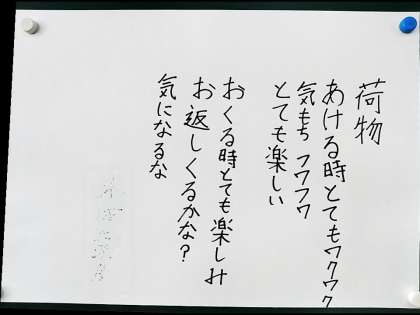 荷物
あける時とてもワクワク
気もち フワフワ
とても楽しい
おくる時とても楽しみ
お返しくるかな?
気になるな